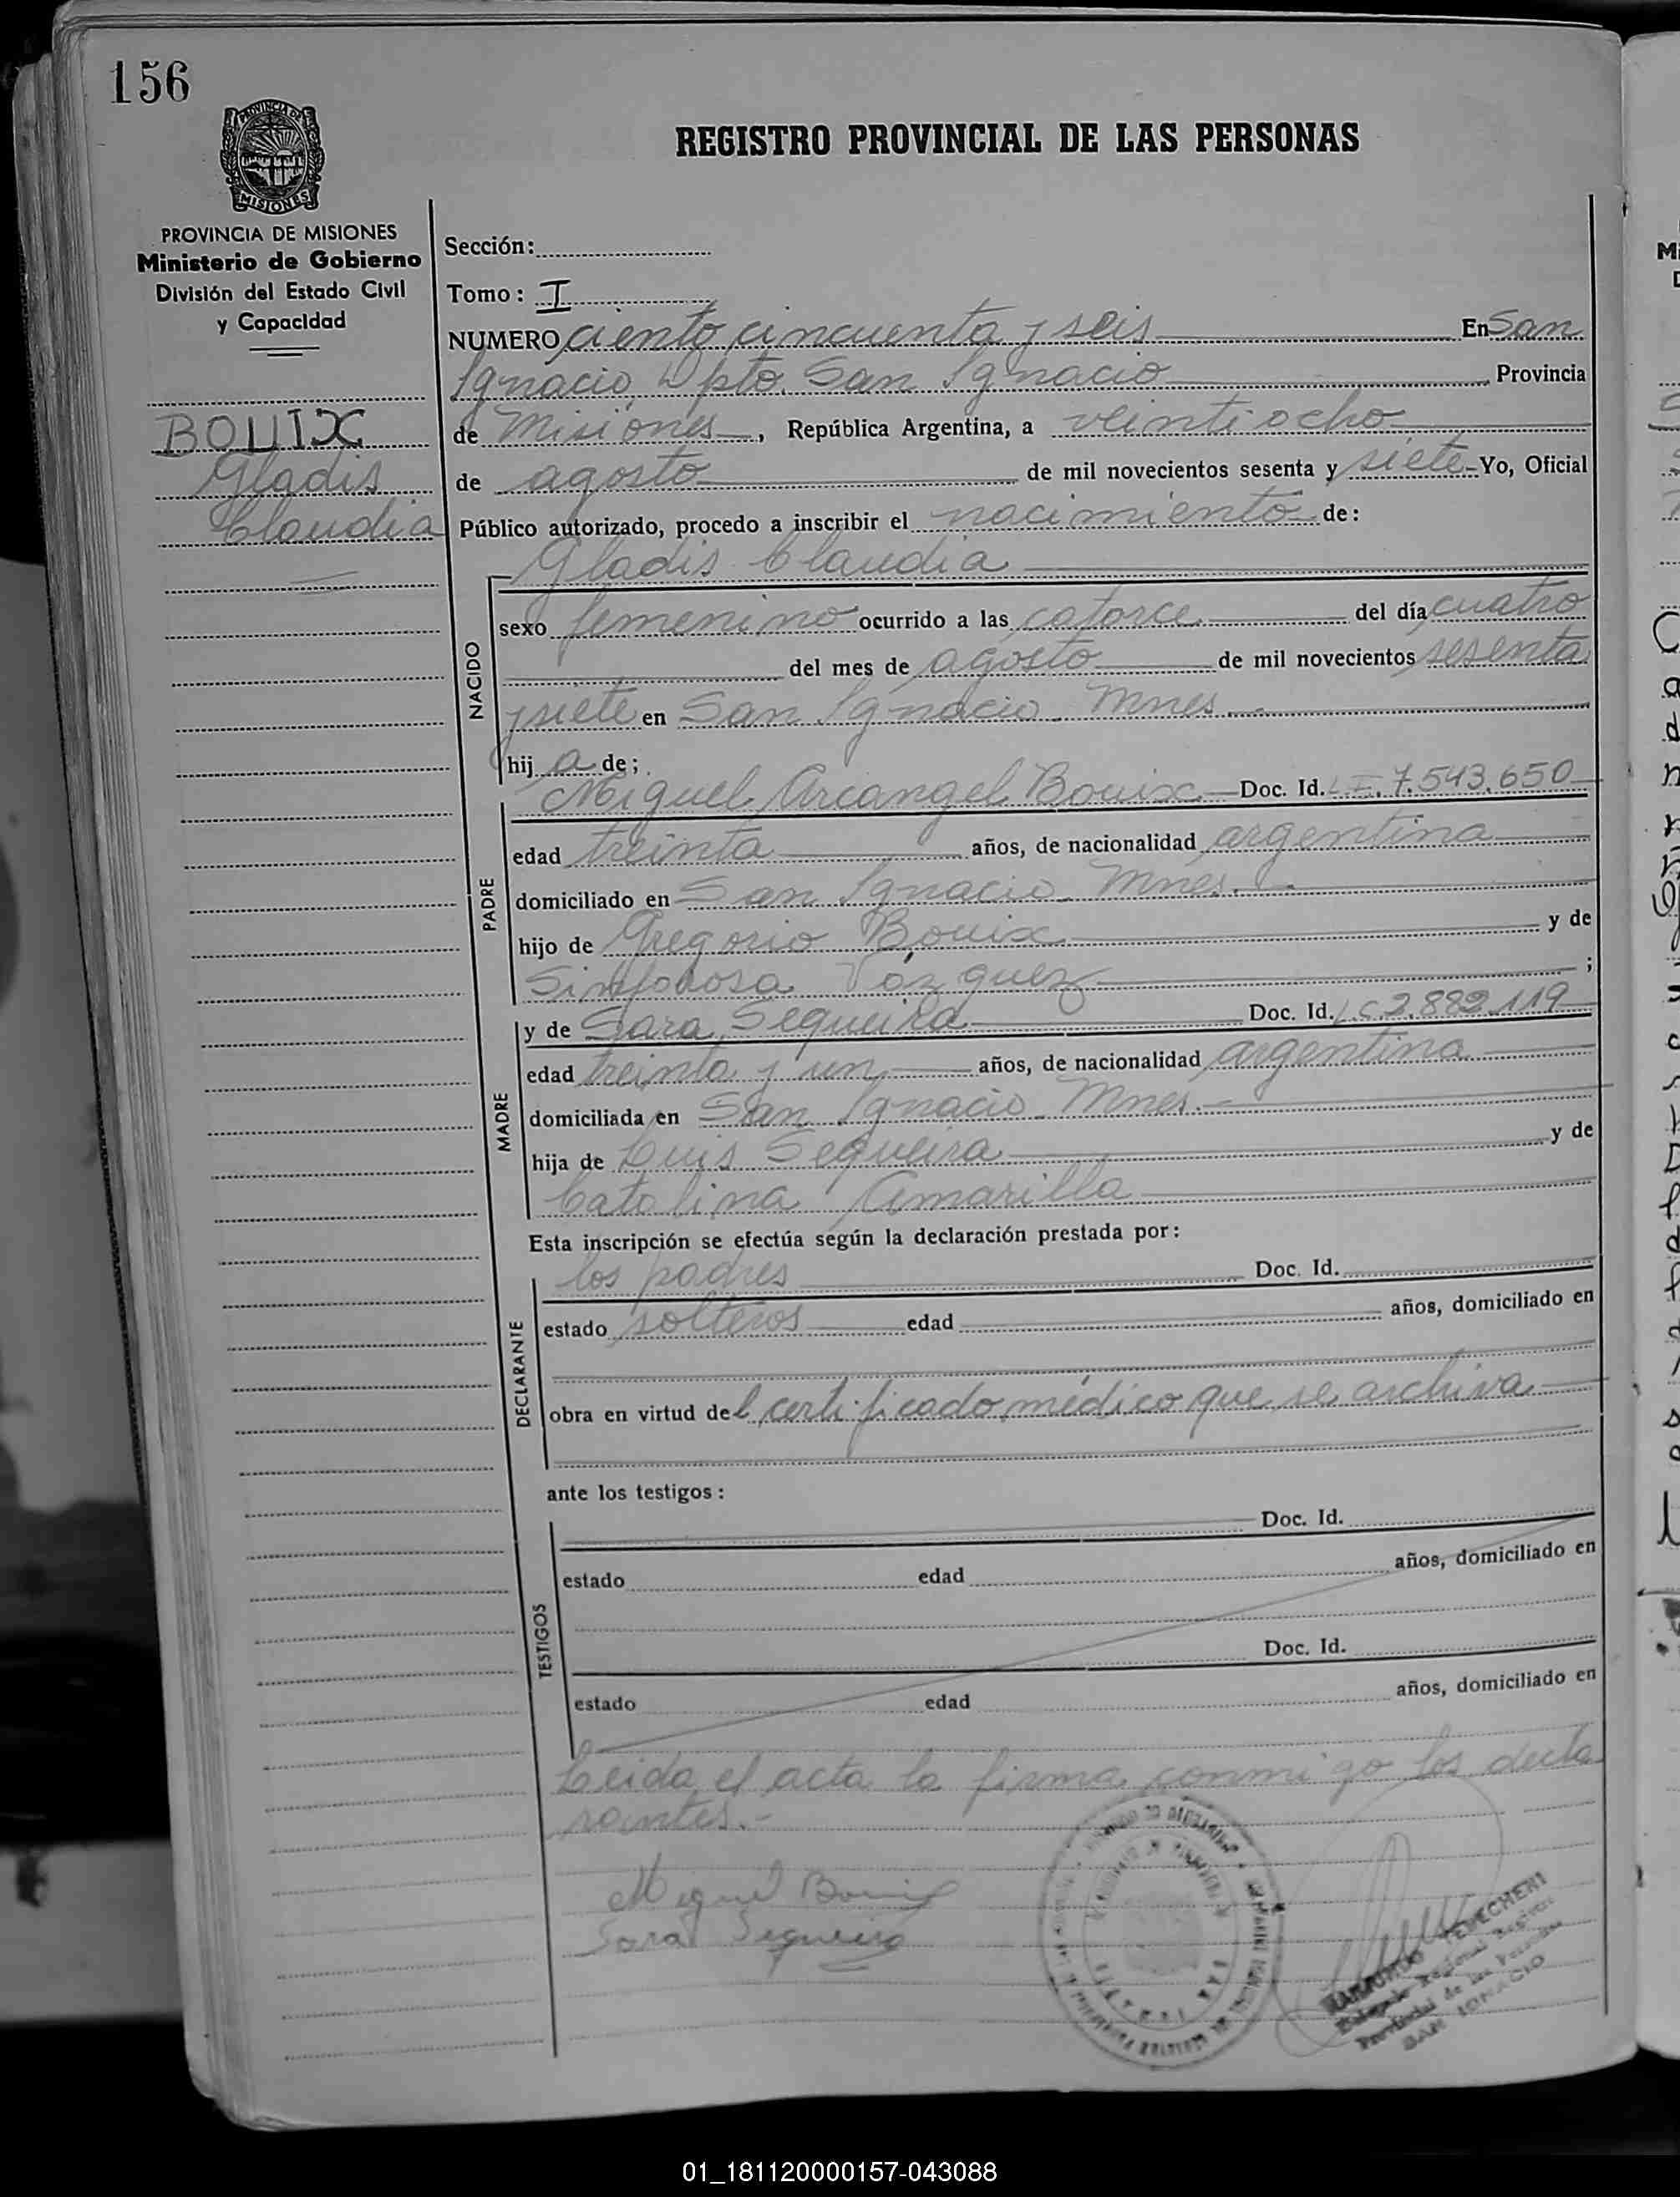 156
PROVINCIA DE
MISIONES
REGISTRO PROVINCIAL DE LAS PERSONAS
PROVINCIA DE MISIONES
Ministerio de Gobierno
División del Estado Civil
y Capacidad
BOUIX
Gladis
Claudia
Sección:
Tomo: I
NUMERO ciento cincuenta y seis En San
Ignacio, Dpto. San Ignacio Provincia
de Misiones, República Argentina, a veintiocho
de agosto de mil novecientos sesenta y siete Yo, Oficial
Público autorizado, procedo a inscribir el nacimiento de:
Gladis Claudia
NACIDO
sexo femenino ocurrido a las catorce del día cuatro
del mes de agosto de mil novecientos sesenta
y siete en San Ignacio Mnes.
hija de;
PADRE
Miguel Arcangel Bouix Doc. Id. 7.543.650
edad treinta años, de nacionalidad argentina
domiciliado en San Ignacio Mnes.
hijo de Gregorio Bouix y de
Sinforosa Vázquez ;
MADRE
y de Sara Sequeira Doc. Id. LC 2.882.119
edad treinta y un años, de nacionalidad argentina
domiciliada en San Ignacio Mnes.
hija de Luis Sequeira y de
Catalina Amarilla
Esta inscripción se efectúa según la declaración prestada por:
DECLARANTE
los padres Doc. Id.
estado solteros edad años, domiciliado en
obra en virtud del certificado médico que se archiva
ante los testigos:
TESTIGOS
Doc. Id.
estado edad años, domiciliado en
Doc. Id.
estado edad años, domiciliado en
Leida el acta la firma conmigo los decla
rantes.-
Miguel Bouix
Sara Sequeira
RAIMUNDO
Delegado Regional Registro
Provincial de las Personas
SAN IGNACIO
01_181120000157-043088